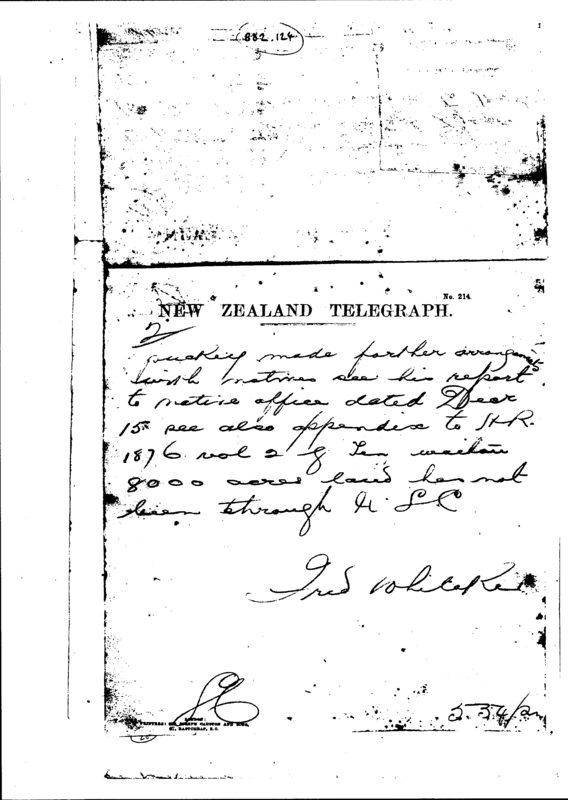 882.124
No. 214.
NEW ZEALAND TELEGRAPH.
2
puckey made further arrangements
with natives see his report
to native office dated Decr
15th see also appendix to H.R.
1876 vol 2 g Ten
8000 acres land has not
been through N L C
Fred Whitaker
5.54/pm
LONDON:
PRINTERS: SIR JOSEPH CAUSTON AND SONS,
EASTCHEAP, E.C.